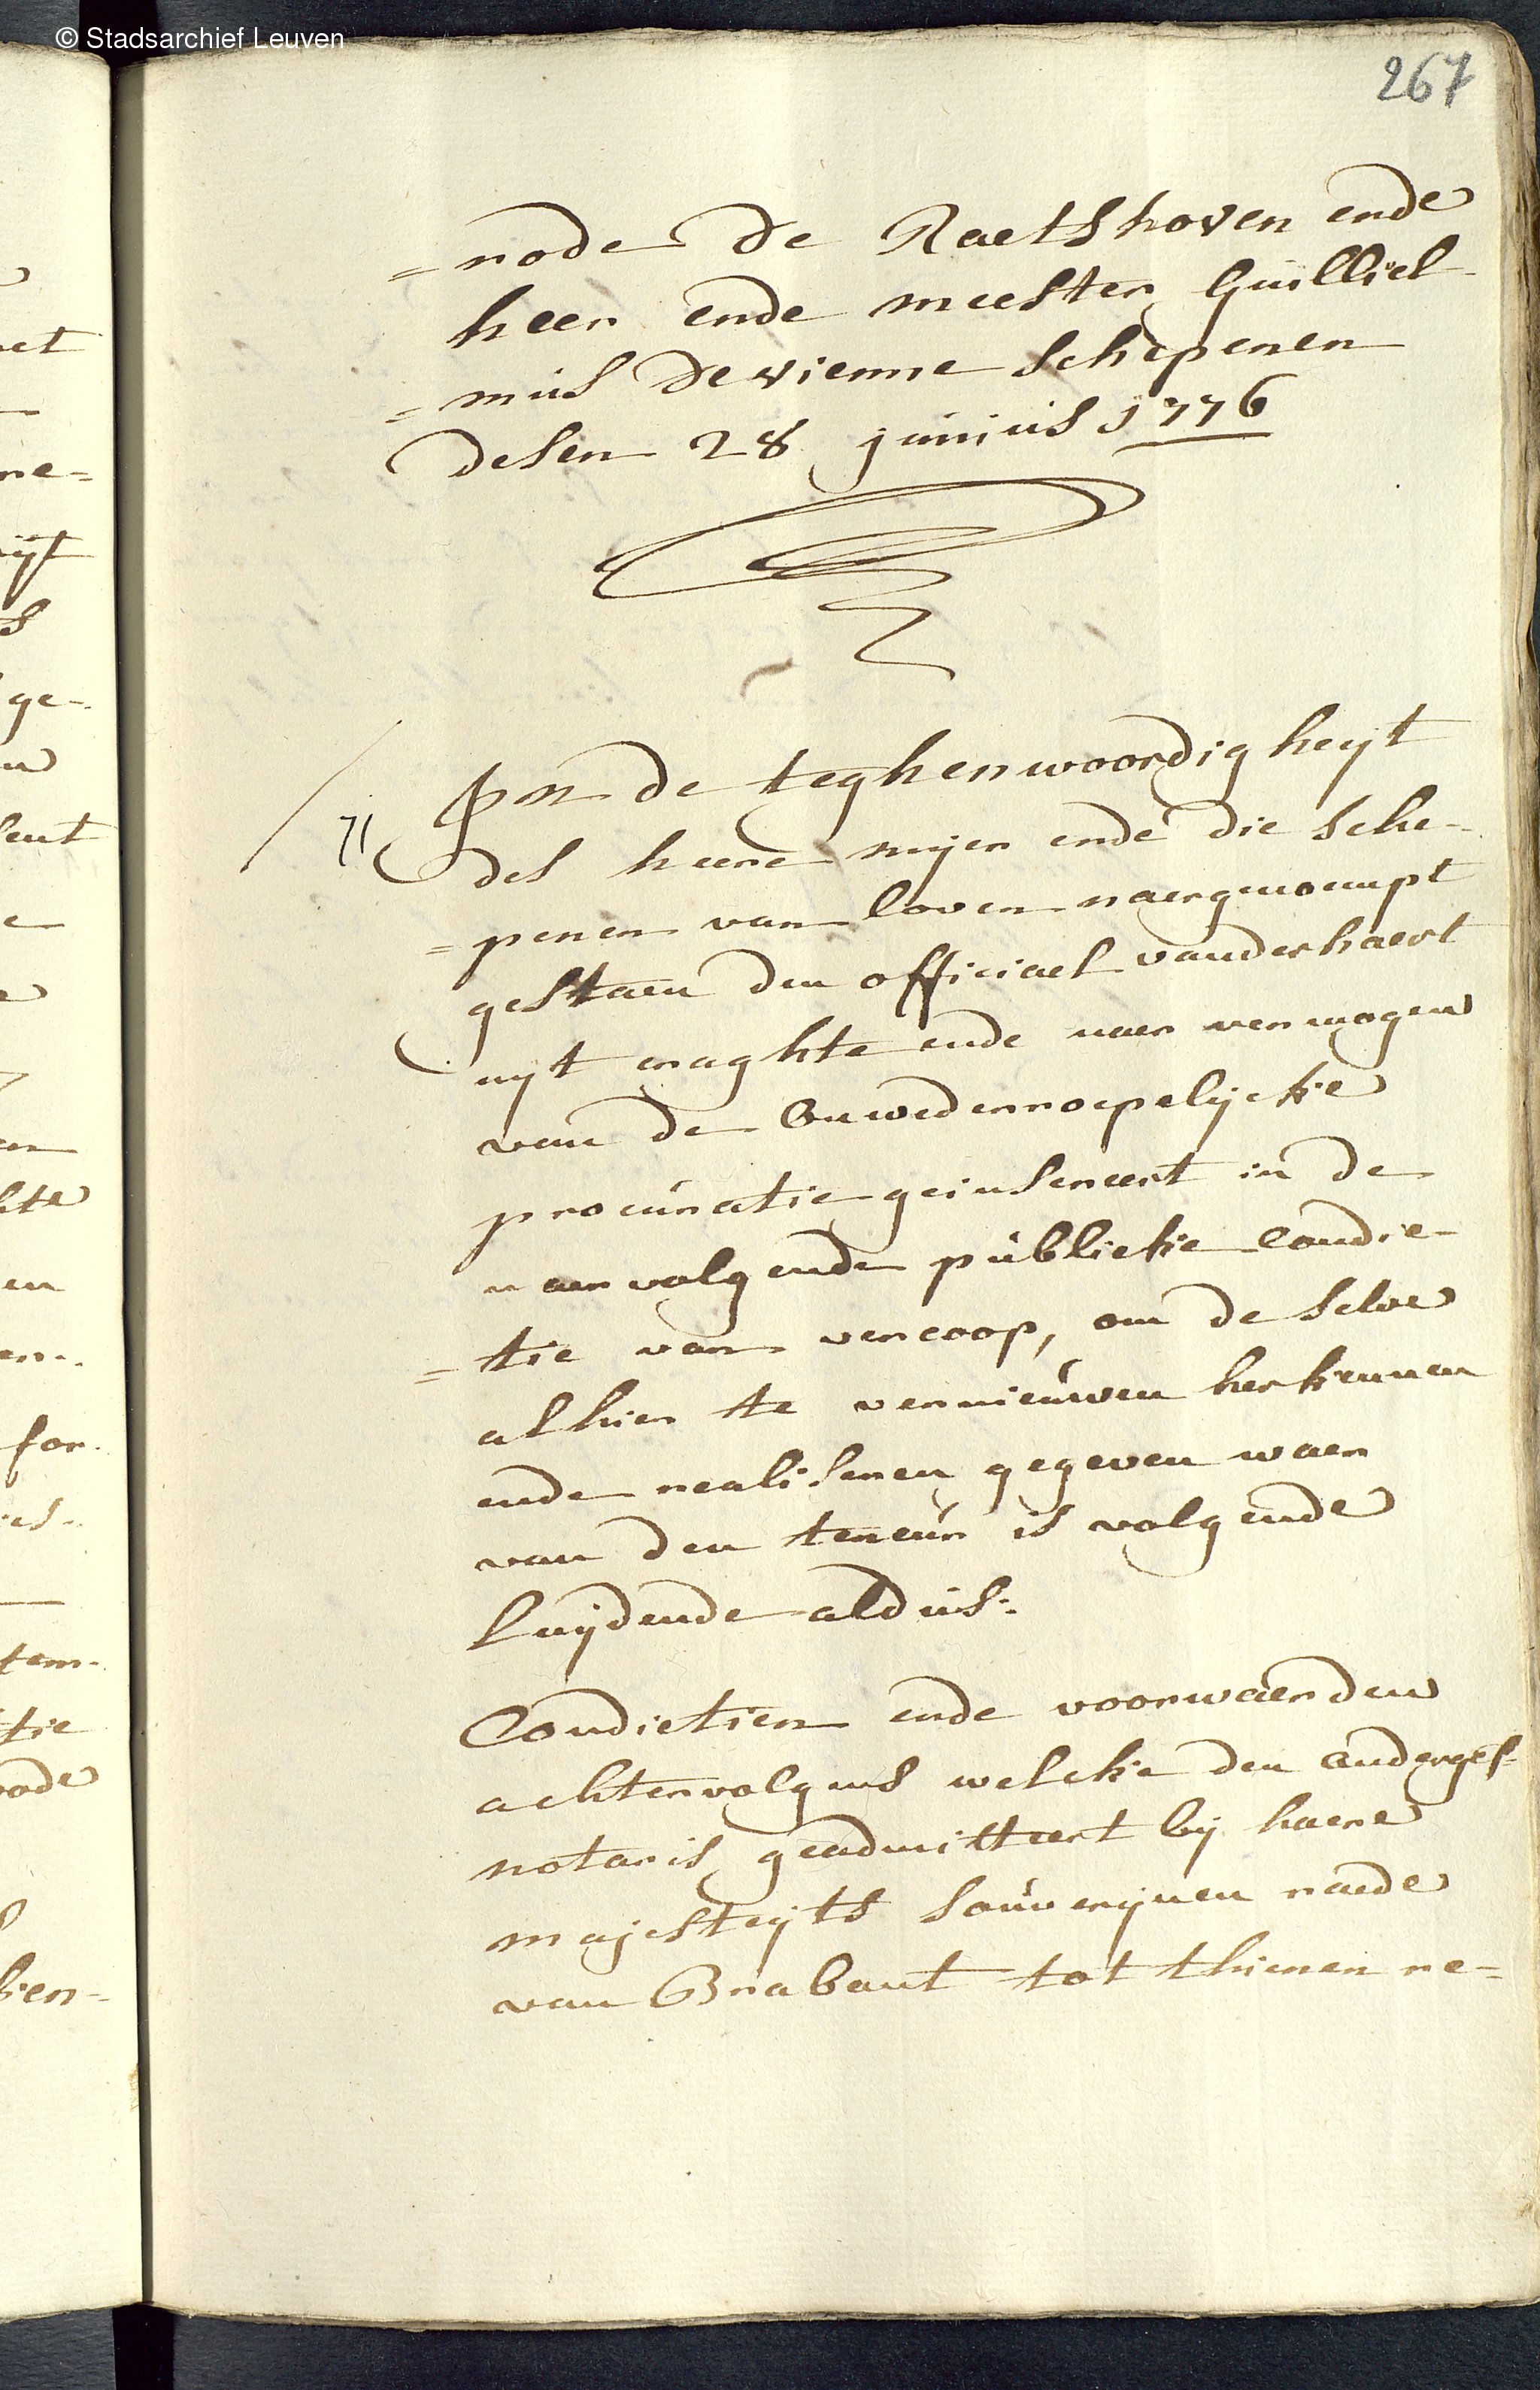 © Stadsarchief Leuven
267
=rode de Raetshoven ende
heer ende meester Guilliel
=mus de vienne schepenen
desen 28 junius 1776
In de teghenwoordigheyt
71
des heere mijer ende die sche-
=penen van loven naergenoempt
gestaen den officiael vanderhaert
uyt craghte ende naer vermogen
van de onwederroepelijcke
procuratie geinsereert in de
naervolgende publieke condi-
=tie van vercoop, om de selve
alhier te vernieuwen herkennen
ende realiseren gegeven waer
van den teneur is volgende
luijdende aldus:
Condietien ende voorwaerden
achtervolgens welcke den onderges
notaris geadmitteert by haere
majesteyts souverijnen raede
van Brabant tot thienen re=